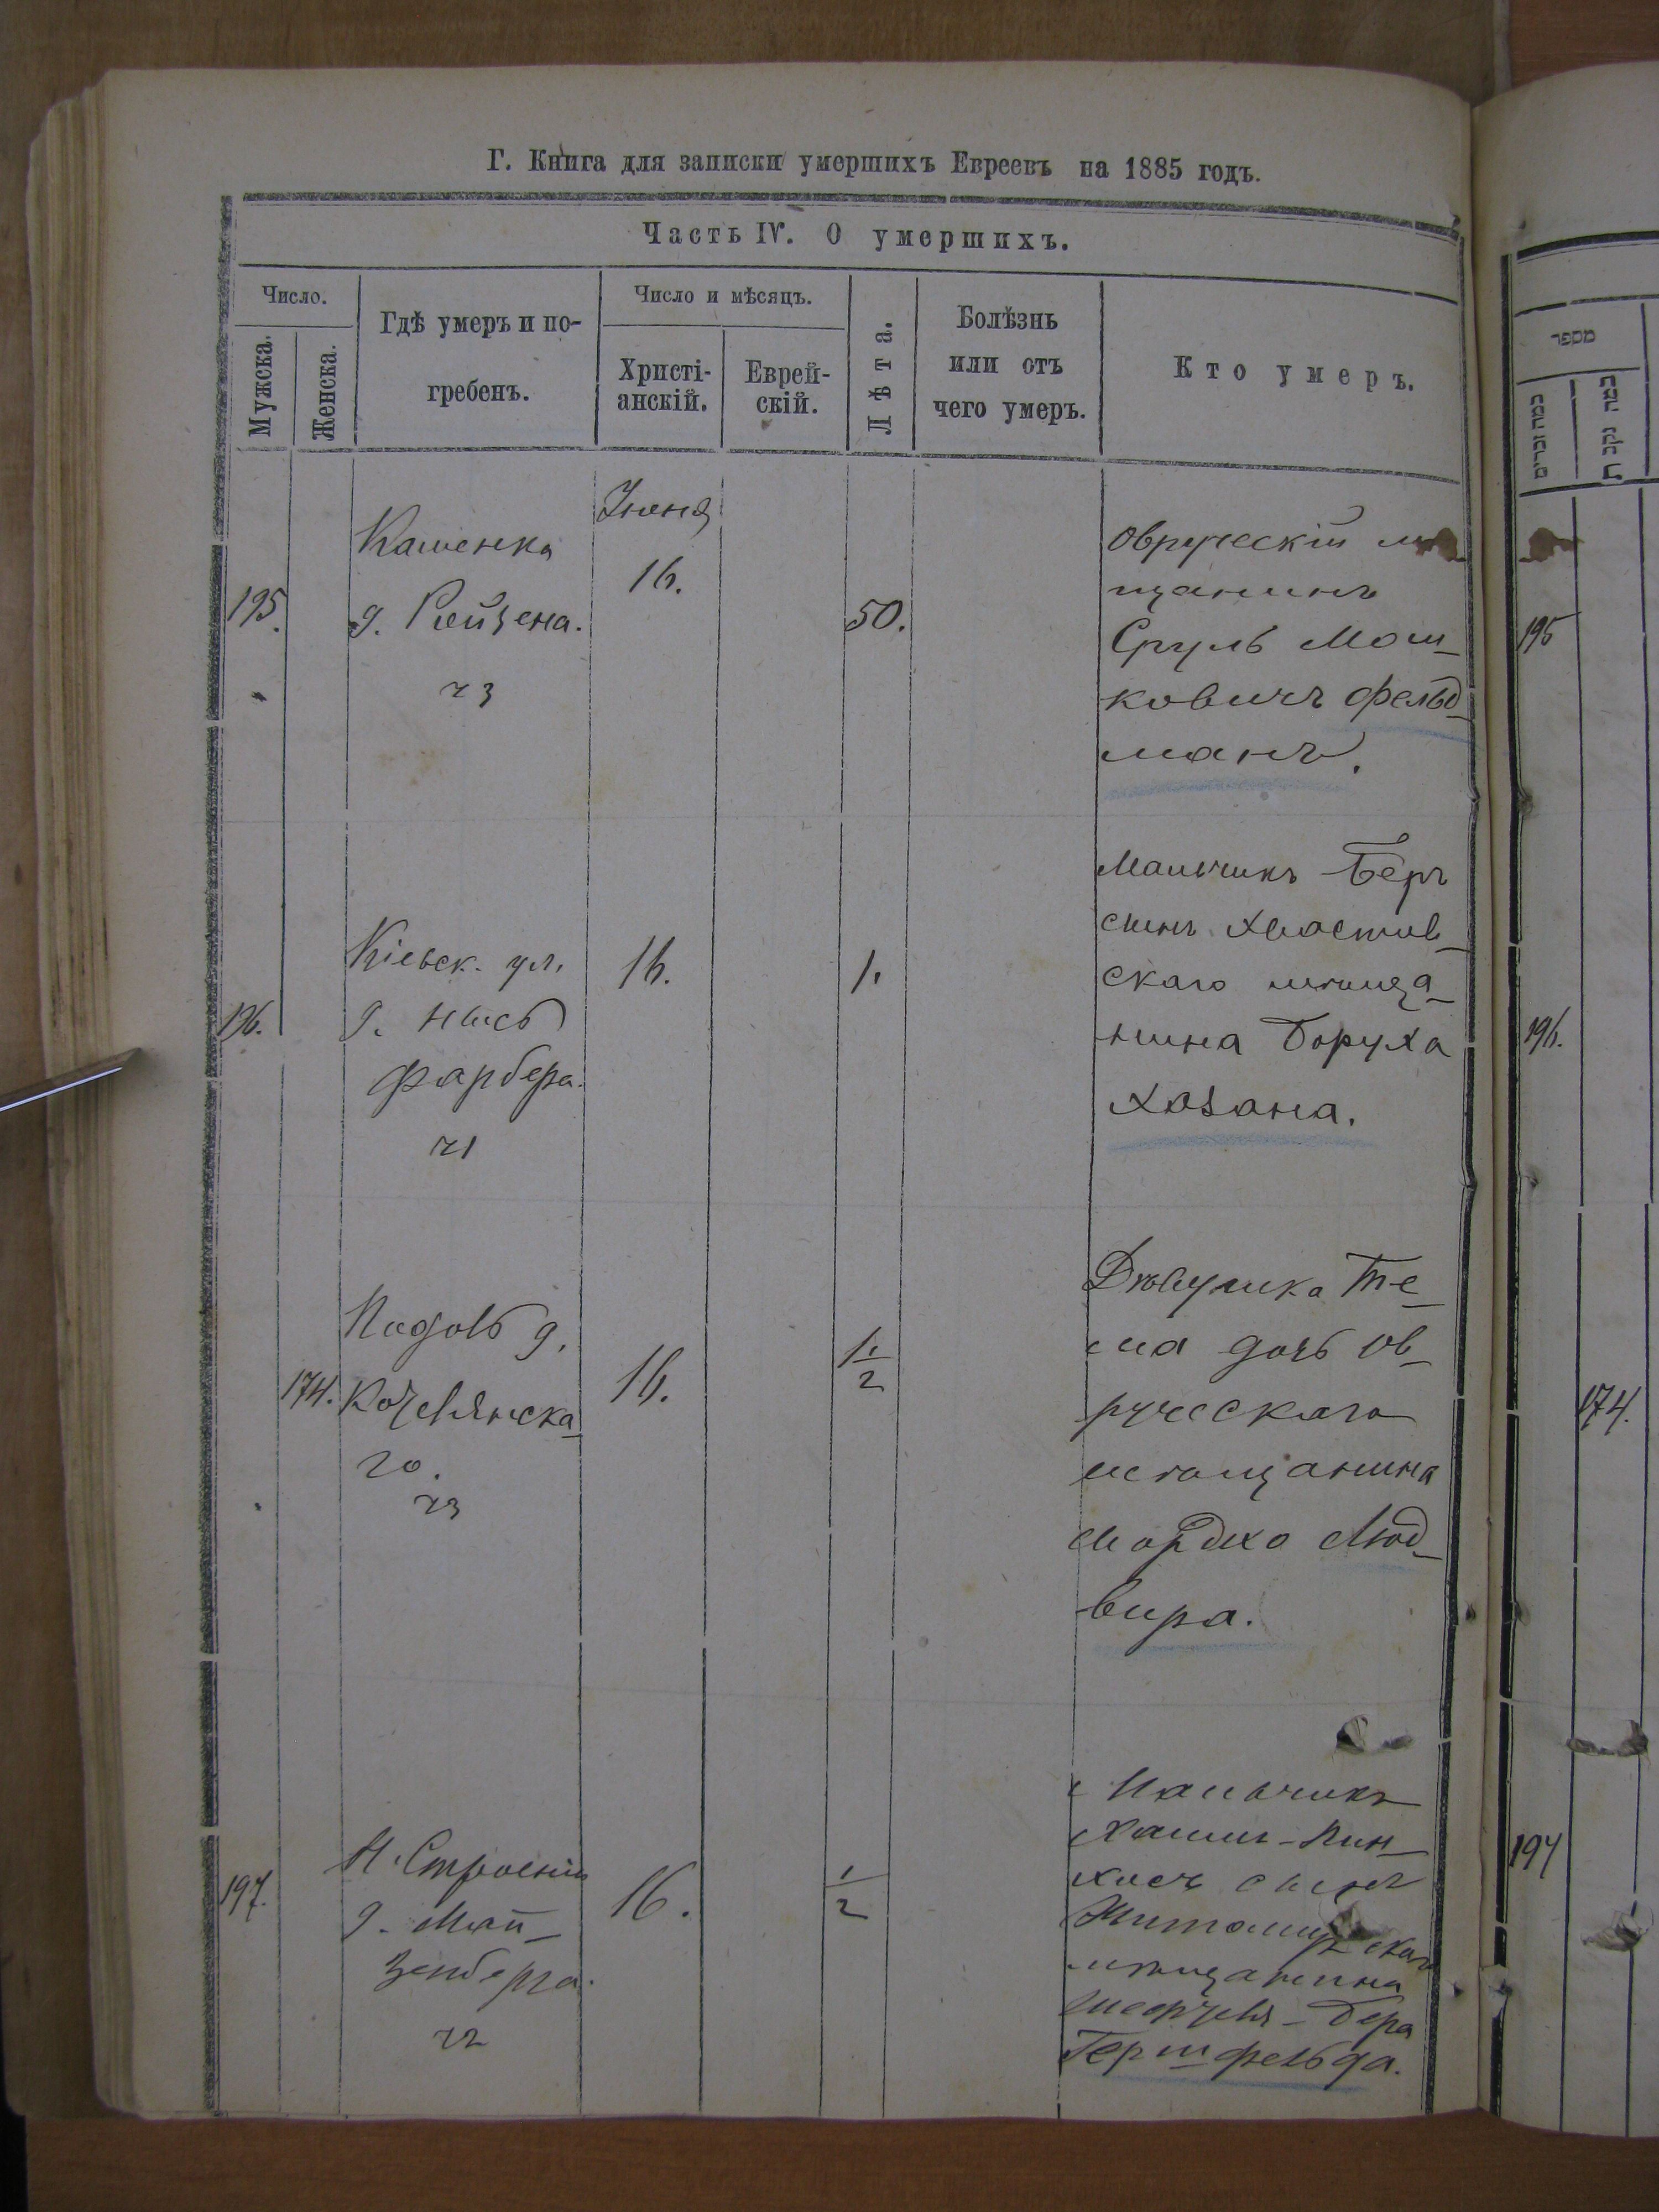 Г. Книга для записки умершихъ Евреевъ на 1885 годъ.
Часть IV. О умершихъ.
Число.
Мужска.
Женска.
Гдѣ умеръ и по-
гребенъ.
Число и мѣсяцъ.
Христі-
анскій.
Еврей-
скій.
Лѣта.
Болѣзнь
или отъ
чего умеръ.
Кто умеръ.
מספר
Іюня
195.
Кашенка
д. Ройзена.
ч3
16.
50.
Овруческій
щанинъ
Сруль Мош-
ковичъ Фельд-
манъ.
195
196.
Кіевск. ул.
д.
Фарбера.
ч1
16.
1.
Мальчикъ Беръ
сынъ Хвастов-
скаго мѣща-
нина Боруха
Хазана.
196.
174.
Подолъ д.
Кочелянска-
го.
ч3
16.
1 1/2
Дѣвушка Те-
ма дочь Ов-
руческаго
мѣщанина
Мордко Люд-
вира.
174.
197.
Н. Строеніи
д. Май-
зенберга.
ч2
16.
1/2
Мальчикъ
Хаимъ-Пин-
хосъ сынъ
Житомирскаго
мѣщанина
Бера
Гершфельда.
197